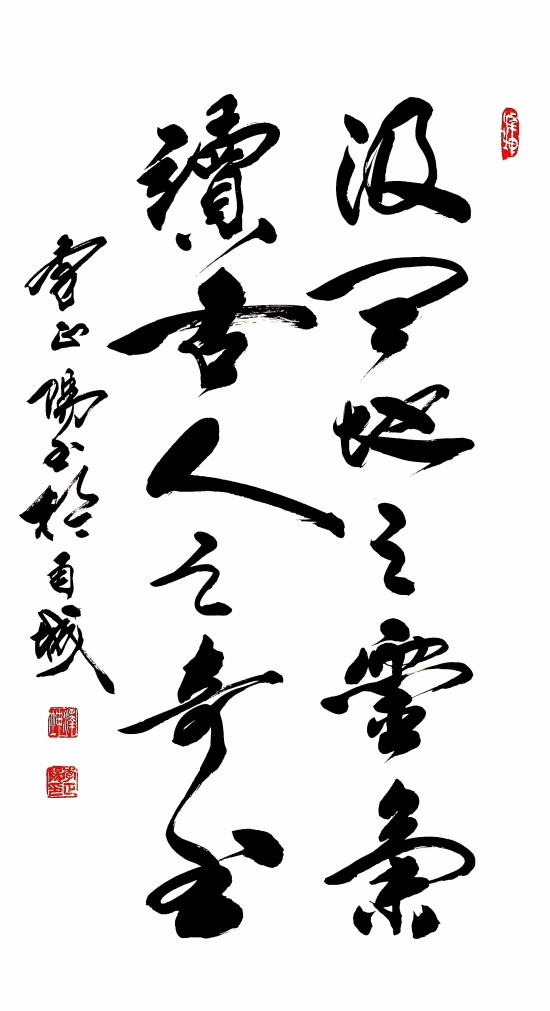 汲天地之靈氣
讀古人之奇书
李正陽书於城